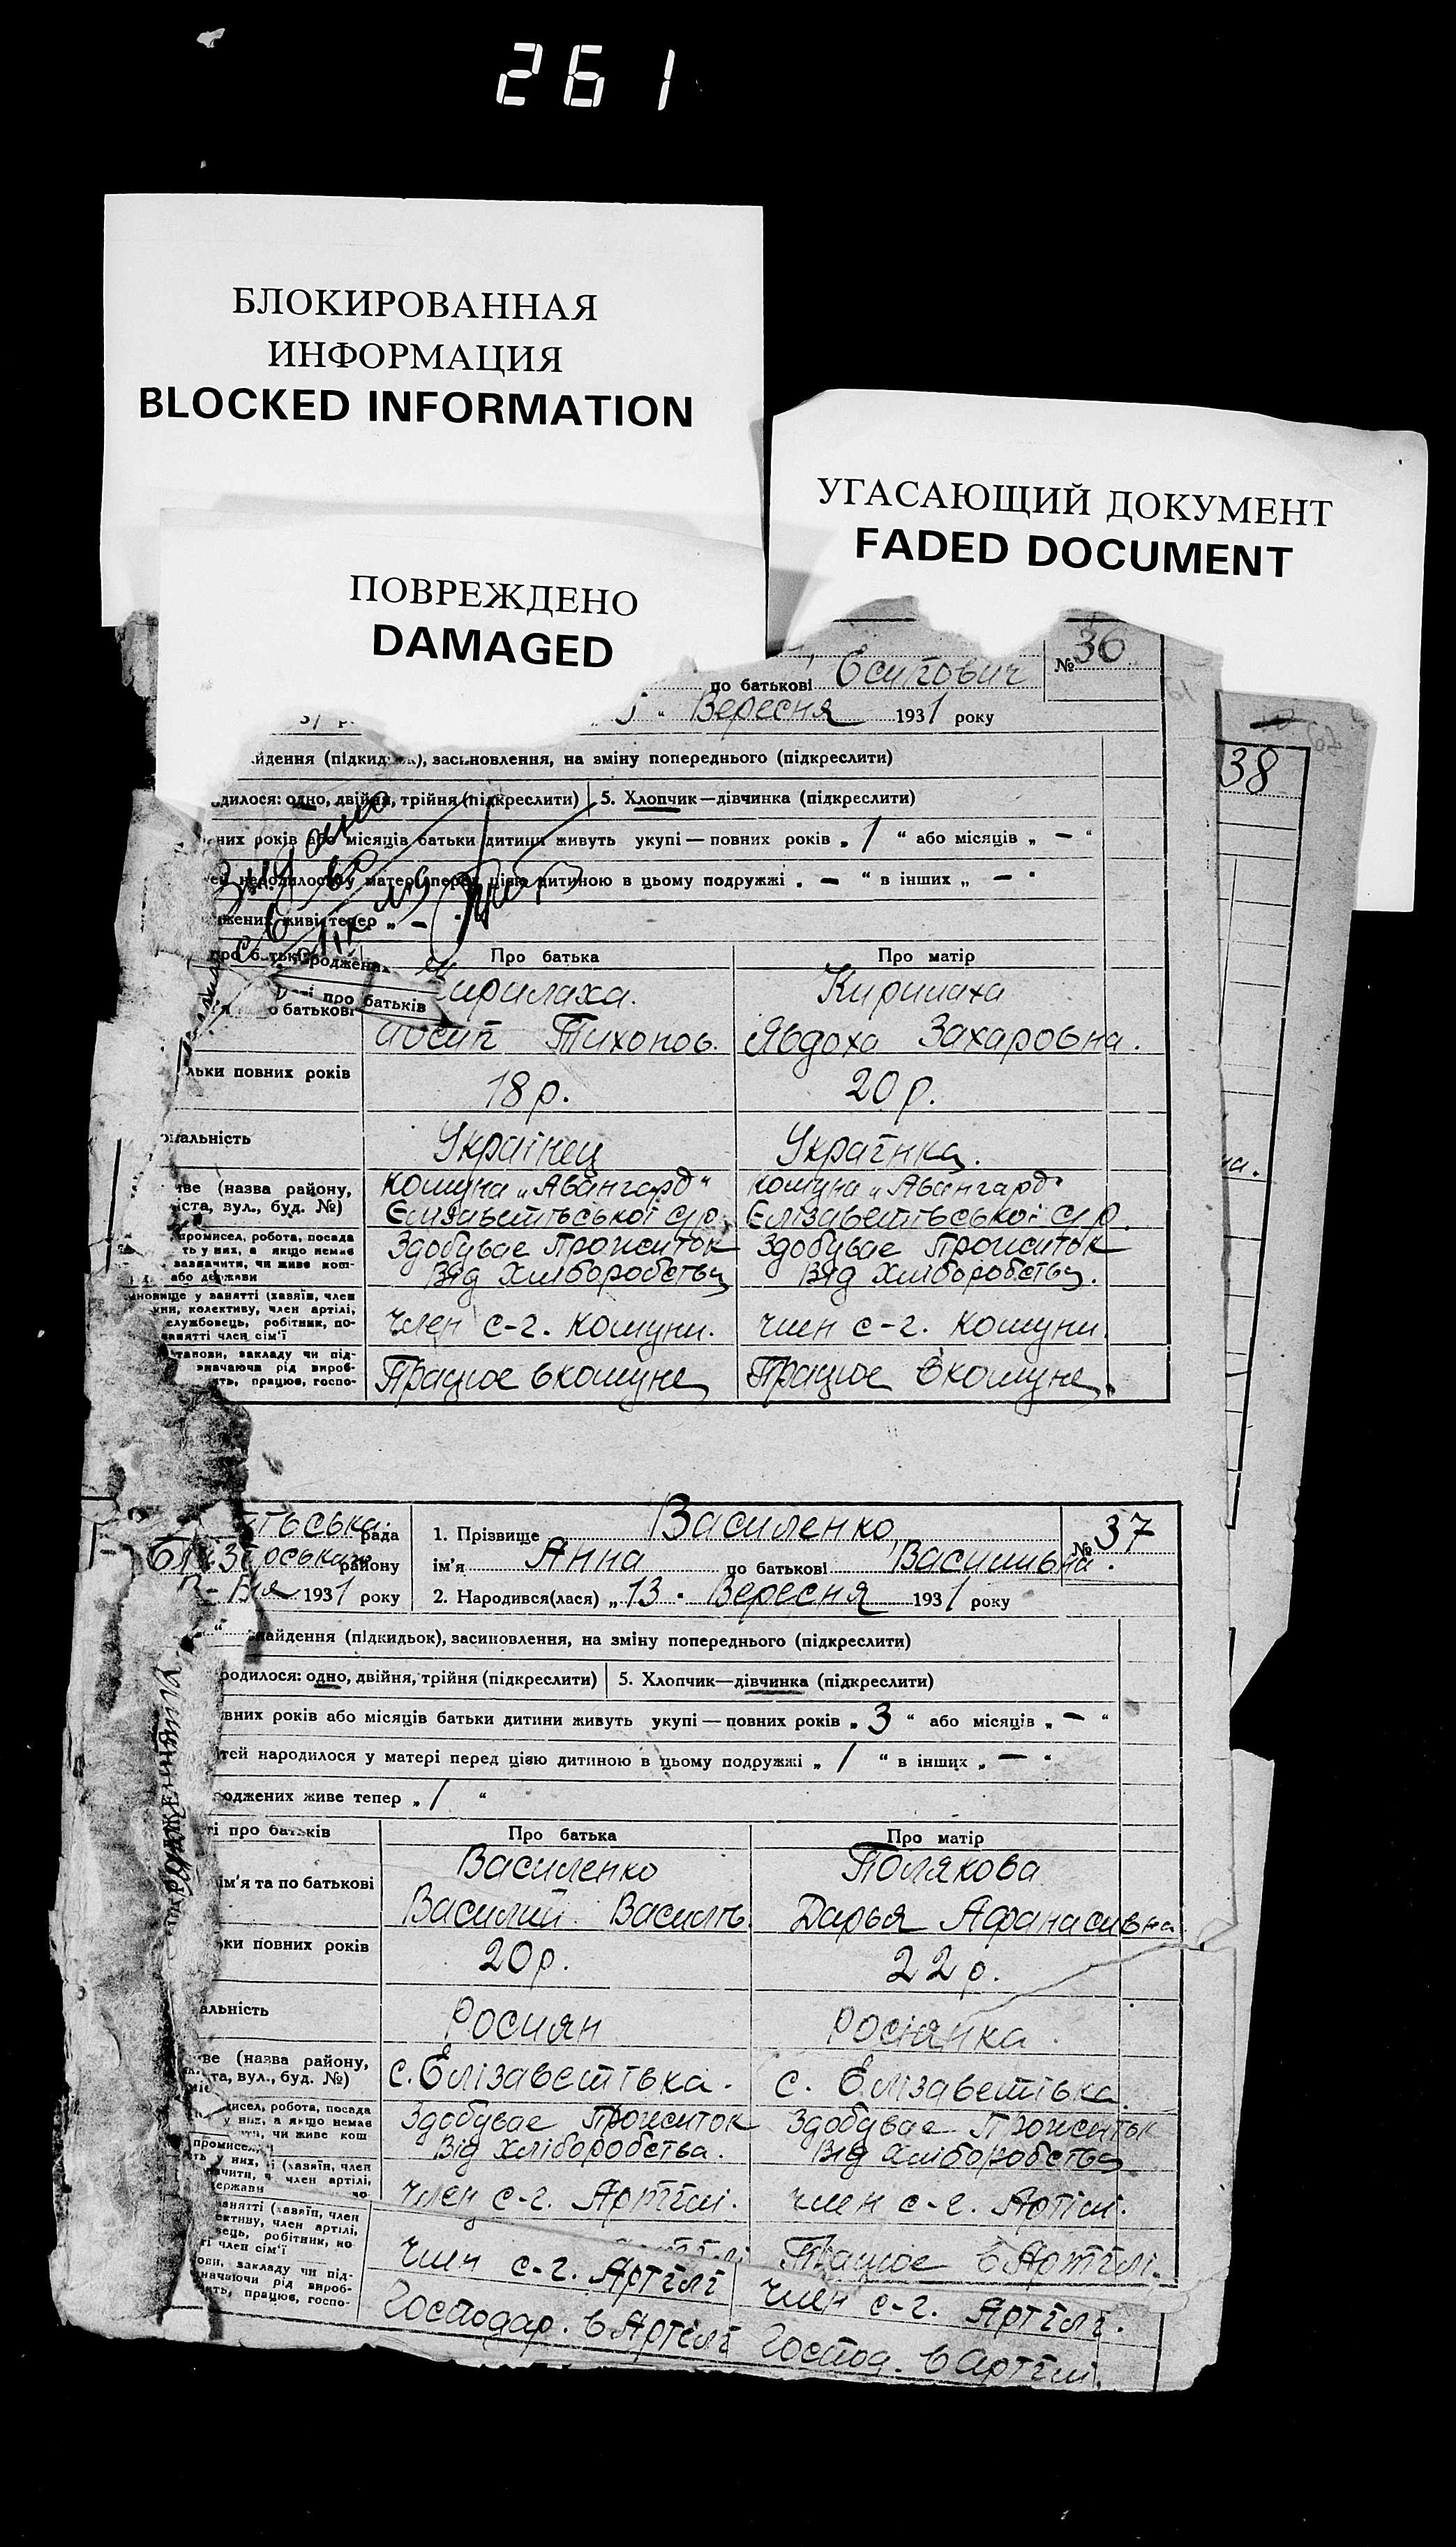 261
БЛОКИРОВАННАЯ
ИНФОРМАЦИЯ
BLOCKED INFORMATION
УГАСАЮЩИЙ ДОКУМЕНТ
FADED DOCUMENT
ПОВРЕЖДЕНО
DAMAGED
№ 36
по батькові Єсипович
" Вересня 1931 року
йдення (підкидьок), засиновлення, на зміну попереднього (підкреслити)
дилося: одно, двійня, трійня (підкреслити) 5. Хлопчик—дівчинка (підкреслити)
них років або місяців батьки дитини живуть укупі — повних років „ 1 “ або місяців „ — “
народилося у матері перед цією дитиною в цьому подружжі „ — “ в інших „ — “
жених живі тепер „ —
про батьків Про батька Про матір
Кирилаха. Кирилаха
по батькові
Йосип Тихонов. Явдоха Захаровна.
льки повних років
18 р. 20 р.
ональність
Українец Українка.
ве (назва району, комуна „Авангард“ комуна „Авангард“
іста, вул., буд. №) Єлізаветівської с/р. Єлізаветівської с/р.
промисел, робота, посада Здобувае Прожиток Здобувае Прожиток
ть у них, а якщо немає
зазначити, чи живе кош- Від Хліборобства Від Хліборобства.
або держави
новище у занятті (хазяїн, член
ни, колективу, член артілі,
службовець, робітник, по- член с-г. комуни. член с-г. комуни.
занятті член сім'ї
танови, закладу чи під-
значаюча рід вироб-
ить, працює, госпо- Працюе в комуне Працюе в комуне.
38
на.
тська рада 1. Прізвище Василенко № 37
району ім'я Анна по батькові Васильвна.
1931 року 2. Народився(лася) „ 13 “ Вересня 1931 року
найдення (підкидьок), засиновлення, на зміну попереднього (підкреслити)
родилося: одно, двійня, трійня (підкреслити) 5. Хлопчик—дівчинка (підкреслити)
вних років або місяців батьки дитини живуть укупі — повних років „ 3 “ або місяців „ — “
тей народилося у матері перед цією дитиною в цьому подружжі „ 1 “ в інших „ — “
роджених живе тепер „ 1 “
ті про батьків Про батька Про матір
Василенко Полякова
ім'я та по батькові
Василий Василь. Дарья Афанасивна
ьки повних років 20 р. 22 р.
альність Росиян Росіянка.
ве (назва району, с. Елізаветівка. с. Елізаветівка
та, вул., буд. №)
исел, робота, посада Здобувае Прожиток Здобувае Прожиток
у них, а якщо немає
чи живе кош Від хліборобства. Від Хліборобства
промисел
ть у них, і (хазяїн, член
ачити, ч член артілі, член с-г. Артілі. член с-г. Артілі.
держави
занятті (хазяїн, член
ективу, член артілі, Працюе в Артілі.
вець, робітник, по
ті член сім'ї член с-г. Артілі член с-г. Артілі.
ови, закладу чи під-
начаючи рід вироб-
ить, працює, госпо- Господар. в Артілі Господ. в Артілі.